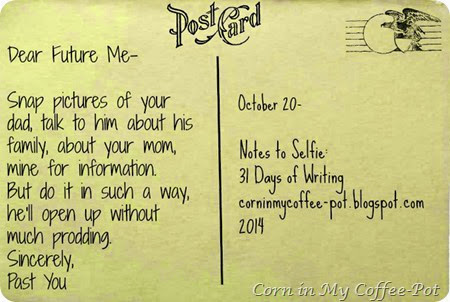 Post Card
Dear Future Me-
Snap pictures of your
dad, talk to him about his
family, about your mom,
mine for information.
But do it in such a way,
he'll open up without
much prodding.
Sincerely,
Past You
October 20-
Notes to Selfie:
31 Days of Writing
corninmycoffee-pot.blogspot.com
2014
Corn in My Coffee-Pot